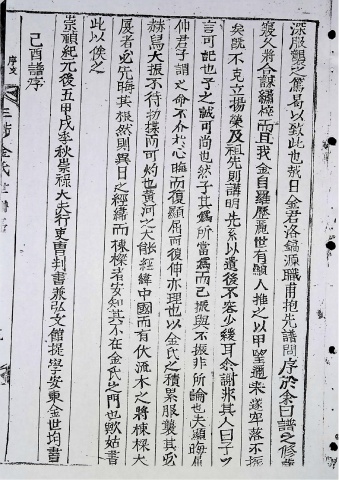 深服觀之篤曷以致此也哉日金君洛鎬源職甫抱先譜問序於余曰譜之修
寢久將合謀繡梓而且我金自羅歷麗世有顯人推之以甲望邇來遂牢落不振
矣旣不克立揚榮及祖先則講明先系以遺後不容少緩耳余謝非其人曰子之
言可記也子之誠可尚也然子其爲所當爲而已振與不振非所論也夫顯晦屈
伸君子謂之命不介於心晦而復顯屈而復伸亦理也以金氏之積累服襲其必
赫舃大振不待揚探而可灼也黃河之大能經緯中國而有伏流木之將棟樑大
厦者必先晦其根然則異日之經緯而棟樑者安知其不在金氏之門也歟姑書
此以俟之
崇禎紀元後五甲戌季秋崇祿大夫行吏曹判書兼弘文館提學安東金世均書
己酉譜序
序文